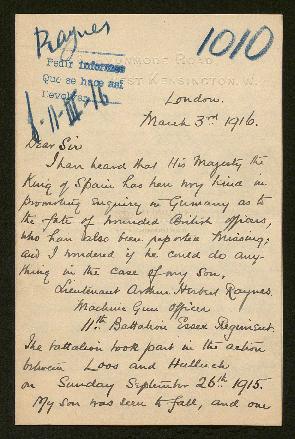 Raynes
1010
Pedir informes
Que se hace así
Devolver
1-11-III-16
ENMORE ROAD
WEST KENSINGTON, W.
London.
March 3rd 1916.
Dear Sir
I have heard that His Majesty the
King of Spain has been very kind in
promoting enquiry in Germany as to
the fate of wounded British officers,
who have also been reported Missing;
and I wondered if he could do any-
thing in the case of my son,
Lieutenant Arthur Herbert Raynes.
Machine Gun Officer
11th Battalion Essex Regiment.
The battalion took part in the action
between Loos and Hulluch
on Sunday September 26th 1915.
My son was seen to fall, and one